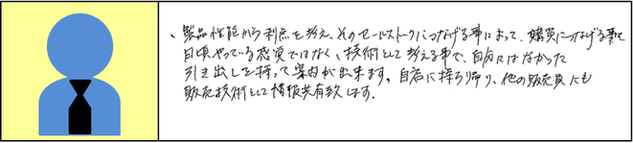 、製品性能から利点を考え、そのセールストークにつなげる事によって、購買につなげる事を
日頃やっている感覚ではなく、技術として考える事で、自分にはなかった
引き出しを持って案内が出来ます。自店に持ち帰り、他の販売員にも
販売技術として情報共有致します。